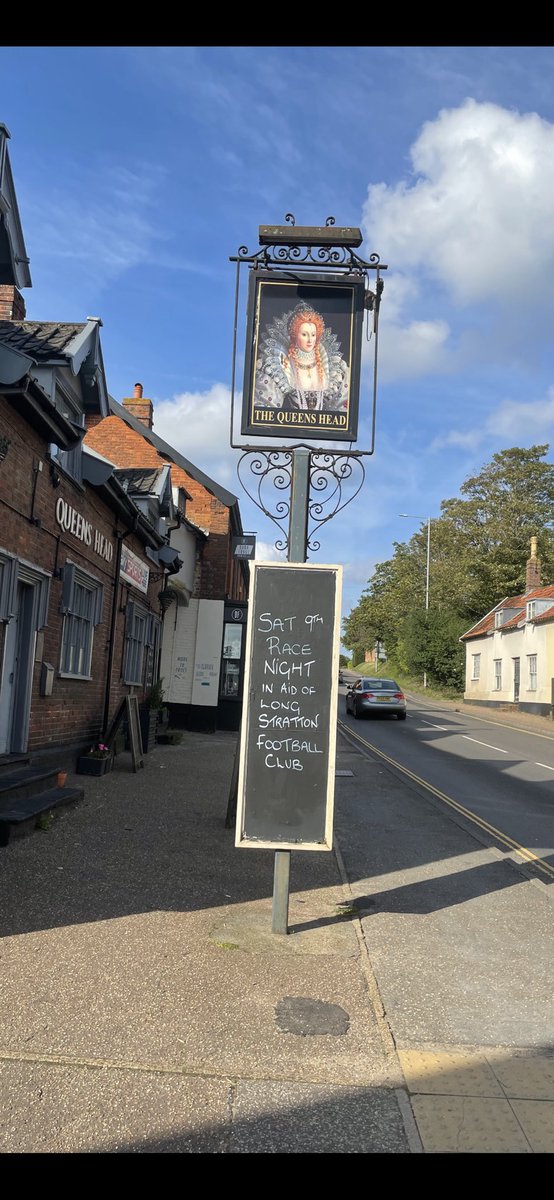 THE QUEENS HEAD
QUEENS HEAD
SAT 9TH
RACE
NIGHT
IN AID OF
LONG
STRATTON
FOOTBALL
CLUB